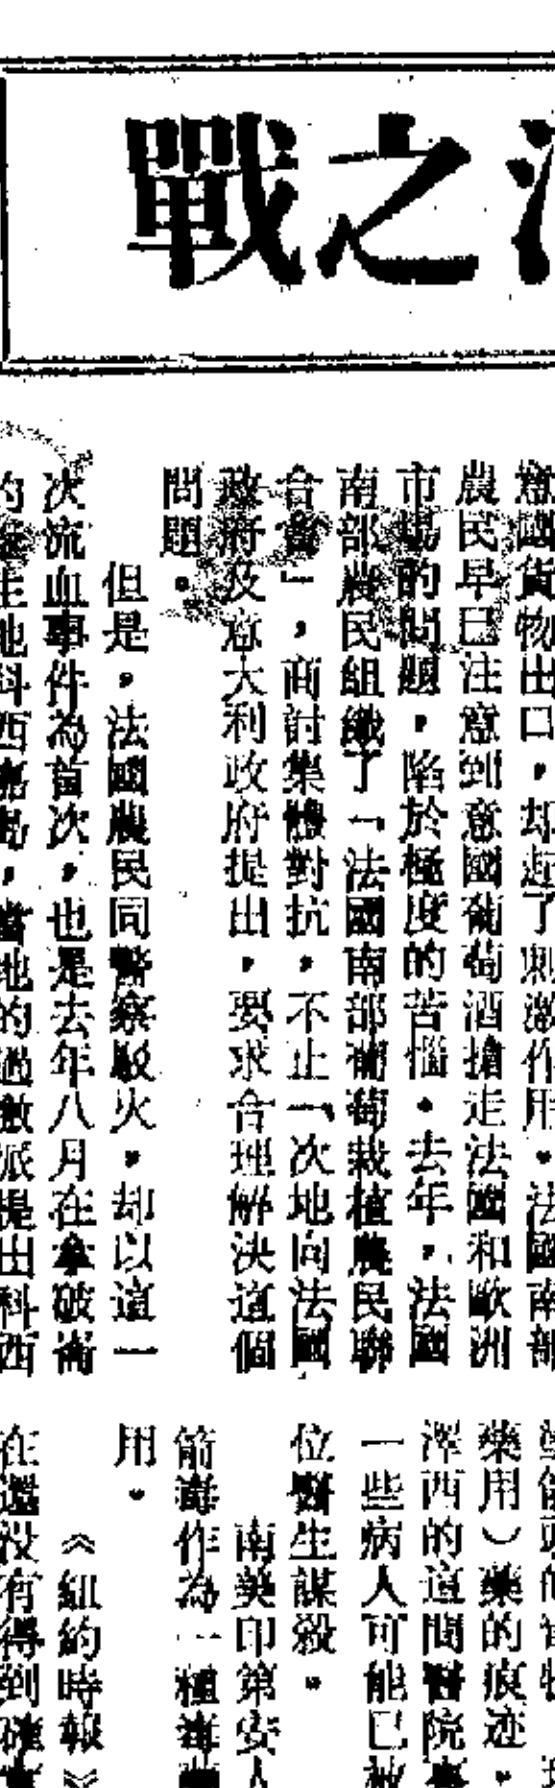 戰之
意國貨物出口，却起了刺激作用。法國南部
農民早已注意到意國葡萄酒搶走法國和歐洲
市場的問題，陷於極度的苦惱。去年，法國
南部農民組織了「法國南部葡萄栽植農民聯
合會」，商討集體對抗，不止一次地向法國
政府及意大利政府提出，要求合理解決這個
問題。
但是，法國農民同警察駁火，却以這一
次流血事件為首次，也是去年八月在拿破崙
的誕生地科西嘉島，當地的過激派提出科西
藥用）藥的痕迹。
澤西的這間醫院
一些病人可能已被
位醫生謀殺。
南美印第安人
箭毒作為一種毒
用。
《紐約時報》
在還没有得到確